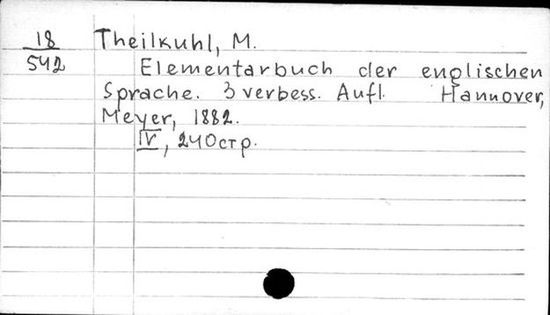 18
542
Theilkuhl, M.
Elementarbuch der englischen
Sprache. 3 verbess. Aufl. Hannover,
Meyer, 1882.
IV, 240 стр.